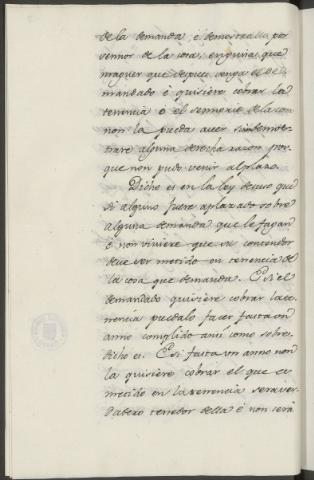 de la demanda, é demostralla por
vennor de la cosa, en guisa que
maguer que despues venga el de
mandado é quisiere cobrar la
tenencia ó el sennorio de la cosa
non la pueda aver si non mos-
trare alguna derecha razon por
que non pudo venir al plazo.
Dicho es en la ley de suso que
si alguno fuere aplazado sobre
alguna demanda que le fagan
é non viniere que su contendor
deve ser metido en tenencia de
la cosa que demanda. E si el
demandado quisiere cobrar la te-
nencia puedalo facer fasta un
anno complido ansi como sobre-
dicho es. E si fasta un anno non
la quisiere cobrar el que es
metido en la tenencia sera ver-
dadero tenedor della é non será